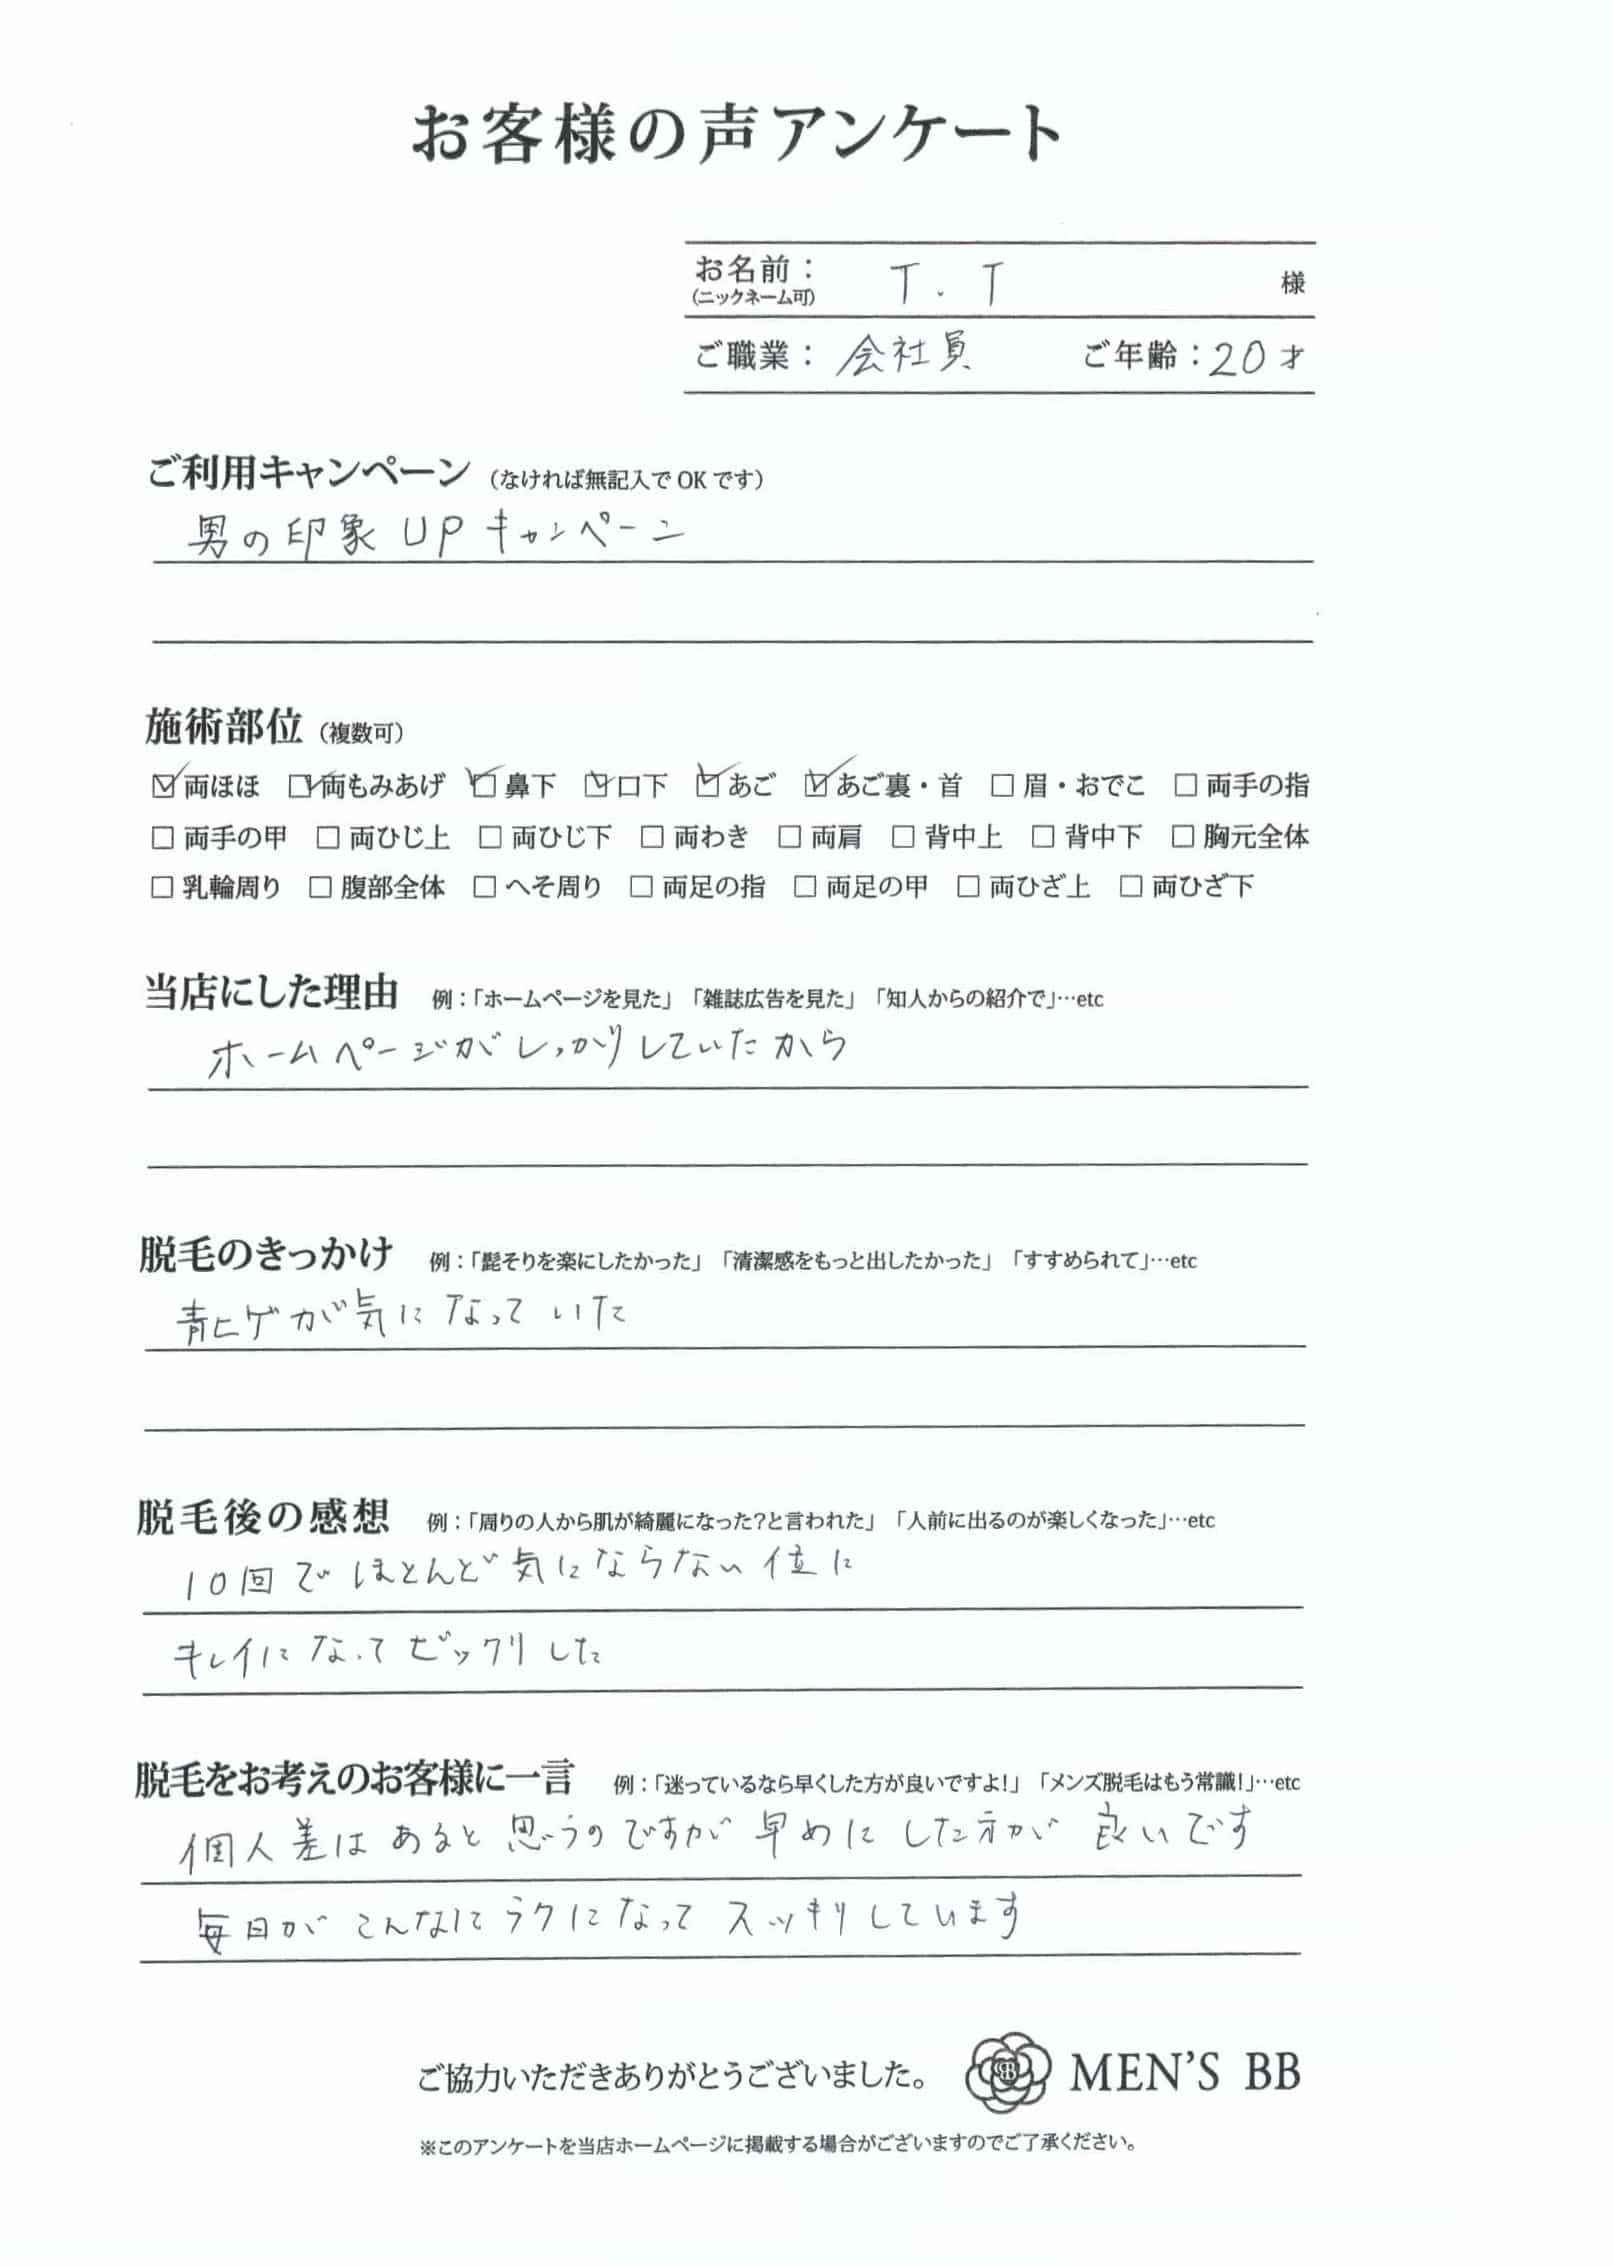 お客様の声アンケート
お名前： T.T 様
(ニックネーム可)
ご職業： 会社員 ご年齢：20才
ご利用キャンペーン（なければ無記入でOKです）
男の印象UPキャンペーン
施術部位（複数可）
☑両ほほ ☑両もみあげ ☑鼻下 ☑口下 ☑あご ☑あご裏・首 □眉・おでこ □両手の指
□両手の甲 □両ひじ上 □両ひじ下 □両わき □両肩 □背中上 □背中下 □胸元全体
□乳輪周り □腹部全体 □へそ周り □両足の指 □両足の甲 □両ひざ上 □両ひざ下
当店にした理由 例：「ホームページを見た」「雑誌広告を見た」「知人からの紹介で」…etc
ホームページがしっかりしていたから
脱毛のきっかけ 例：「髭そりを楽にしたかった」「清潔感をもっと出したかった」「すすめられて」…etc
青ヒゲが気になっていた
脱毛後の感想 例：「周りの人から肌が綺麗になった？と言われた」「人前に出るのが楽しくなった」…etc
10回でほとんど気にならない位に
キレイになってビックリした
脱毛をお考えのお客様に一言 例：「迷っているなら早くした方が良いですよ！」「メンズ脱毛はもう常識！」…etc
個人差はあると思うのですが早めにした方が良いです
毎日がこんなにラクになってスッキリしています
ご協力いただきありがとうございました。 MEN'S BB
※このアンケートを当店ホームページに掲載する場合がございますのでご了承ください。